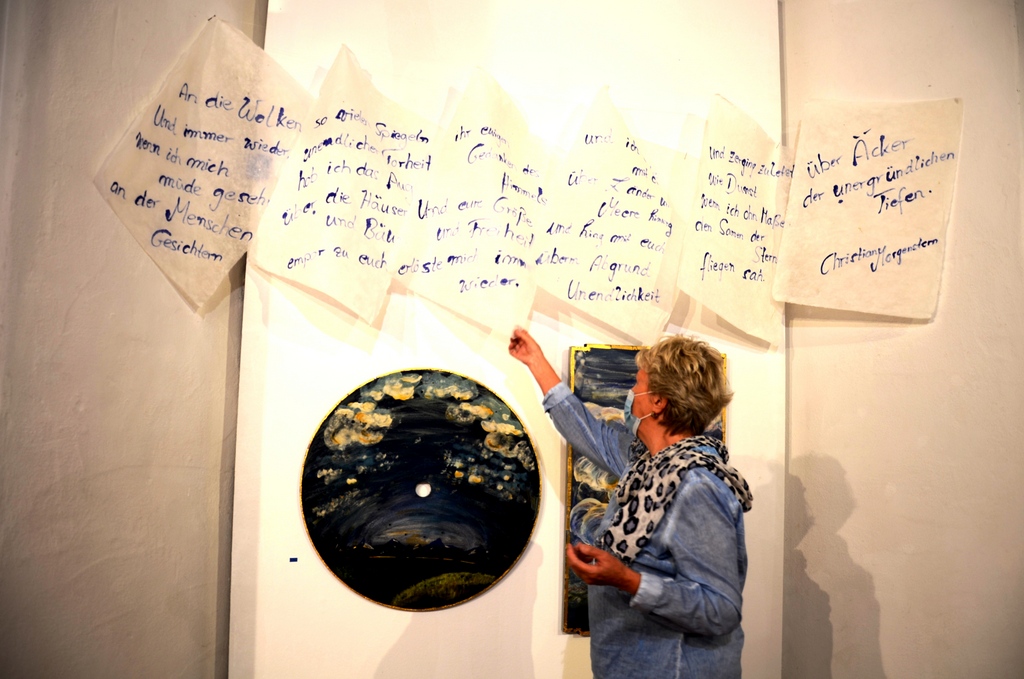 An die Wolken
Und immer wieder,
wenn ich mich
müde gesehn
an der Menschen
Gesichtern
so vielen Spiegeln
unendlicher Torheit
hob ich das Aug
über die Häuser
und Bäu
empor zu euch
ihr ewigen
Gedanken des
Himmels
Und eure Größe
und Freiheit
erlöste mich imm
wieder.
und ich
mit e
über Länder u
Meere hinweg
und hing mit euch
überm Abgrund
Unendlichkeit
und zerging zuletzt
wie Dunst
wenn ich ohn Maßen
den Samen der
Stern
fliegen sah.
über Äcker
der unergründlichen
Tiefen.
Christian Morgenstern